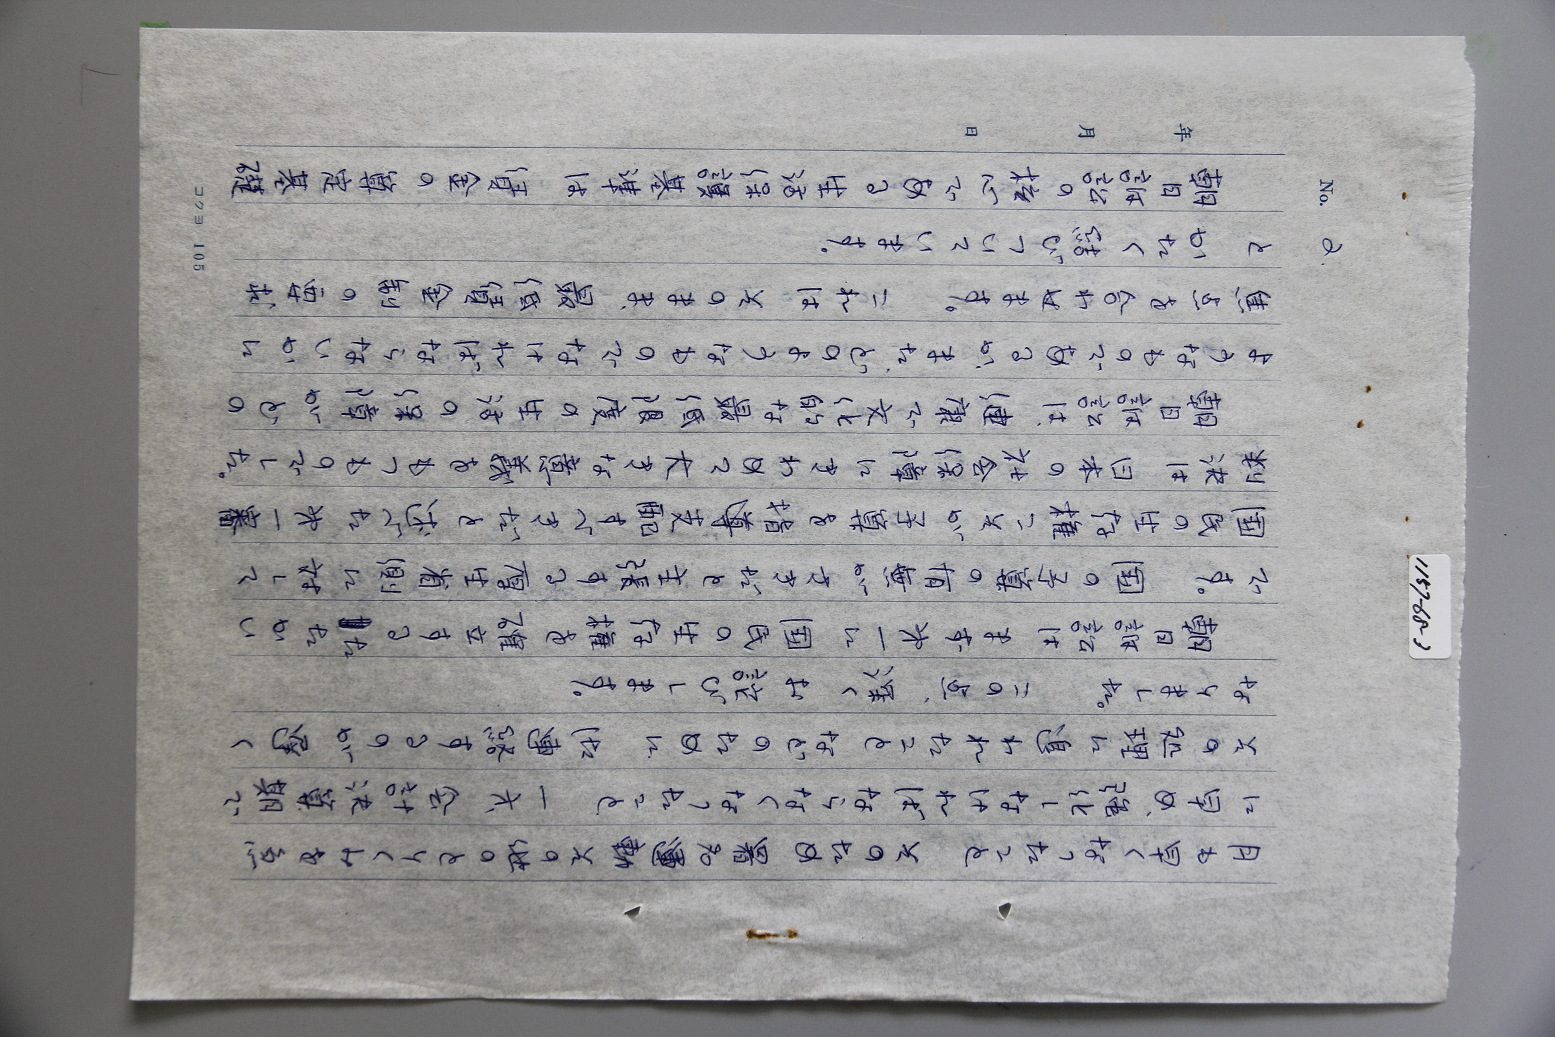 No. 2
年 月 日
日も
そのため署名運動その他のとりくみを急
に早め、強化しなければならなくなったこと、一方
その処理に負われたことなどのために、御連絡するのが遅く
なりました。この点、深くお詫びします。
朝日訴訟はまず第一に国民の生存権を確立するたたかい
です。国の予算の有無が と主張する厚生省側に対して
国民の生存権こそが予算を指導支配すべきだと述べた第一審
判決は日本の社会保障にきわめて大きな意義をもつものでした。
朝日訴訟は、健康で文化的な最低限度の生活の保障がどの
ようなものであるか、また、どのようなものでなければならないかに
焦点を合わせます。これはそのまま、最低賃金制の要求
とかたく結びついています。
朝日訴訟の核心である生活保護基準は賃金の算定基礎
コクヨ 105